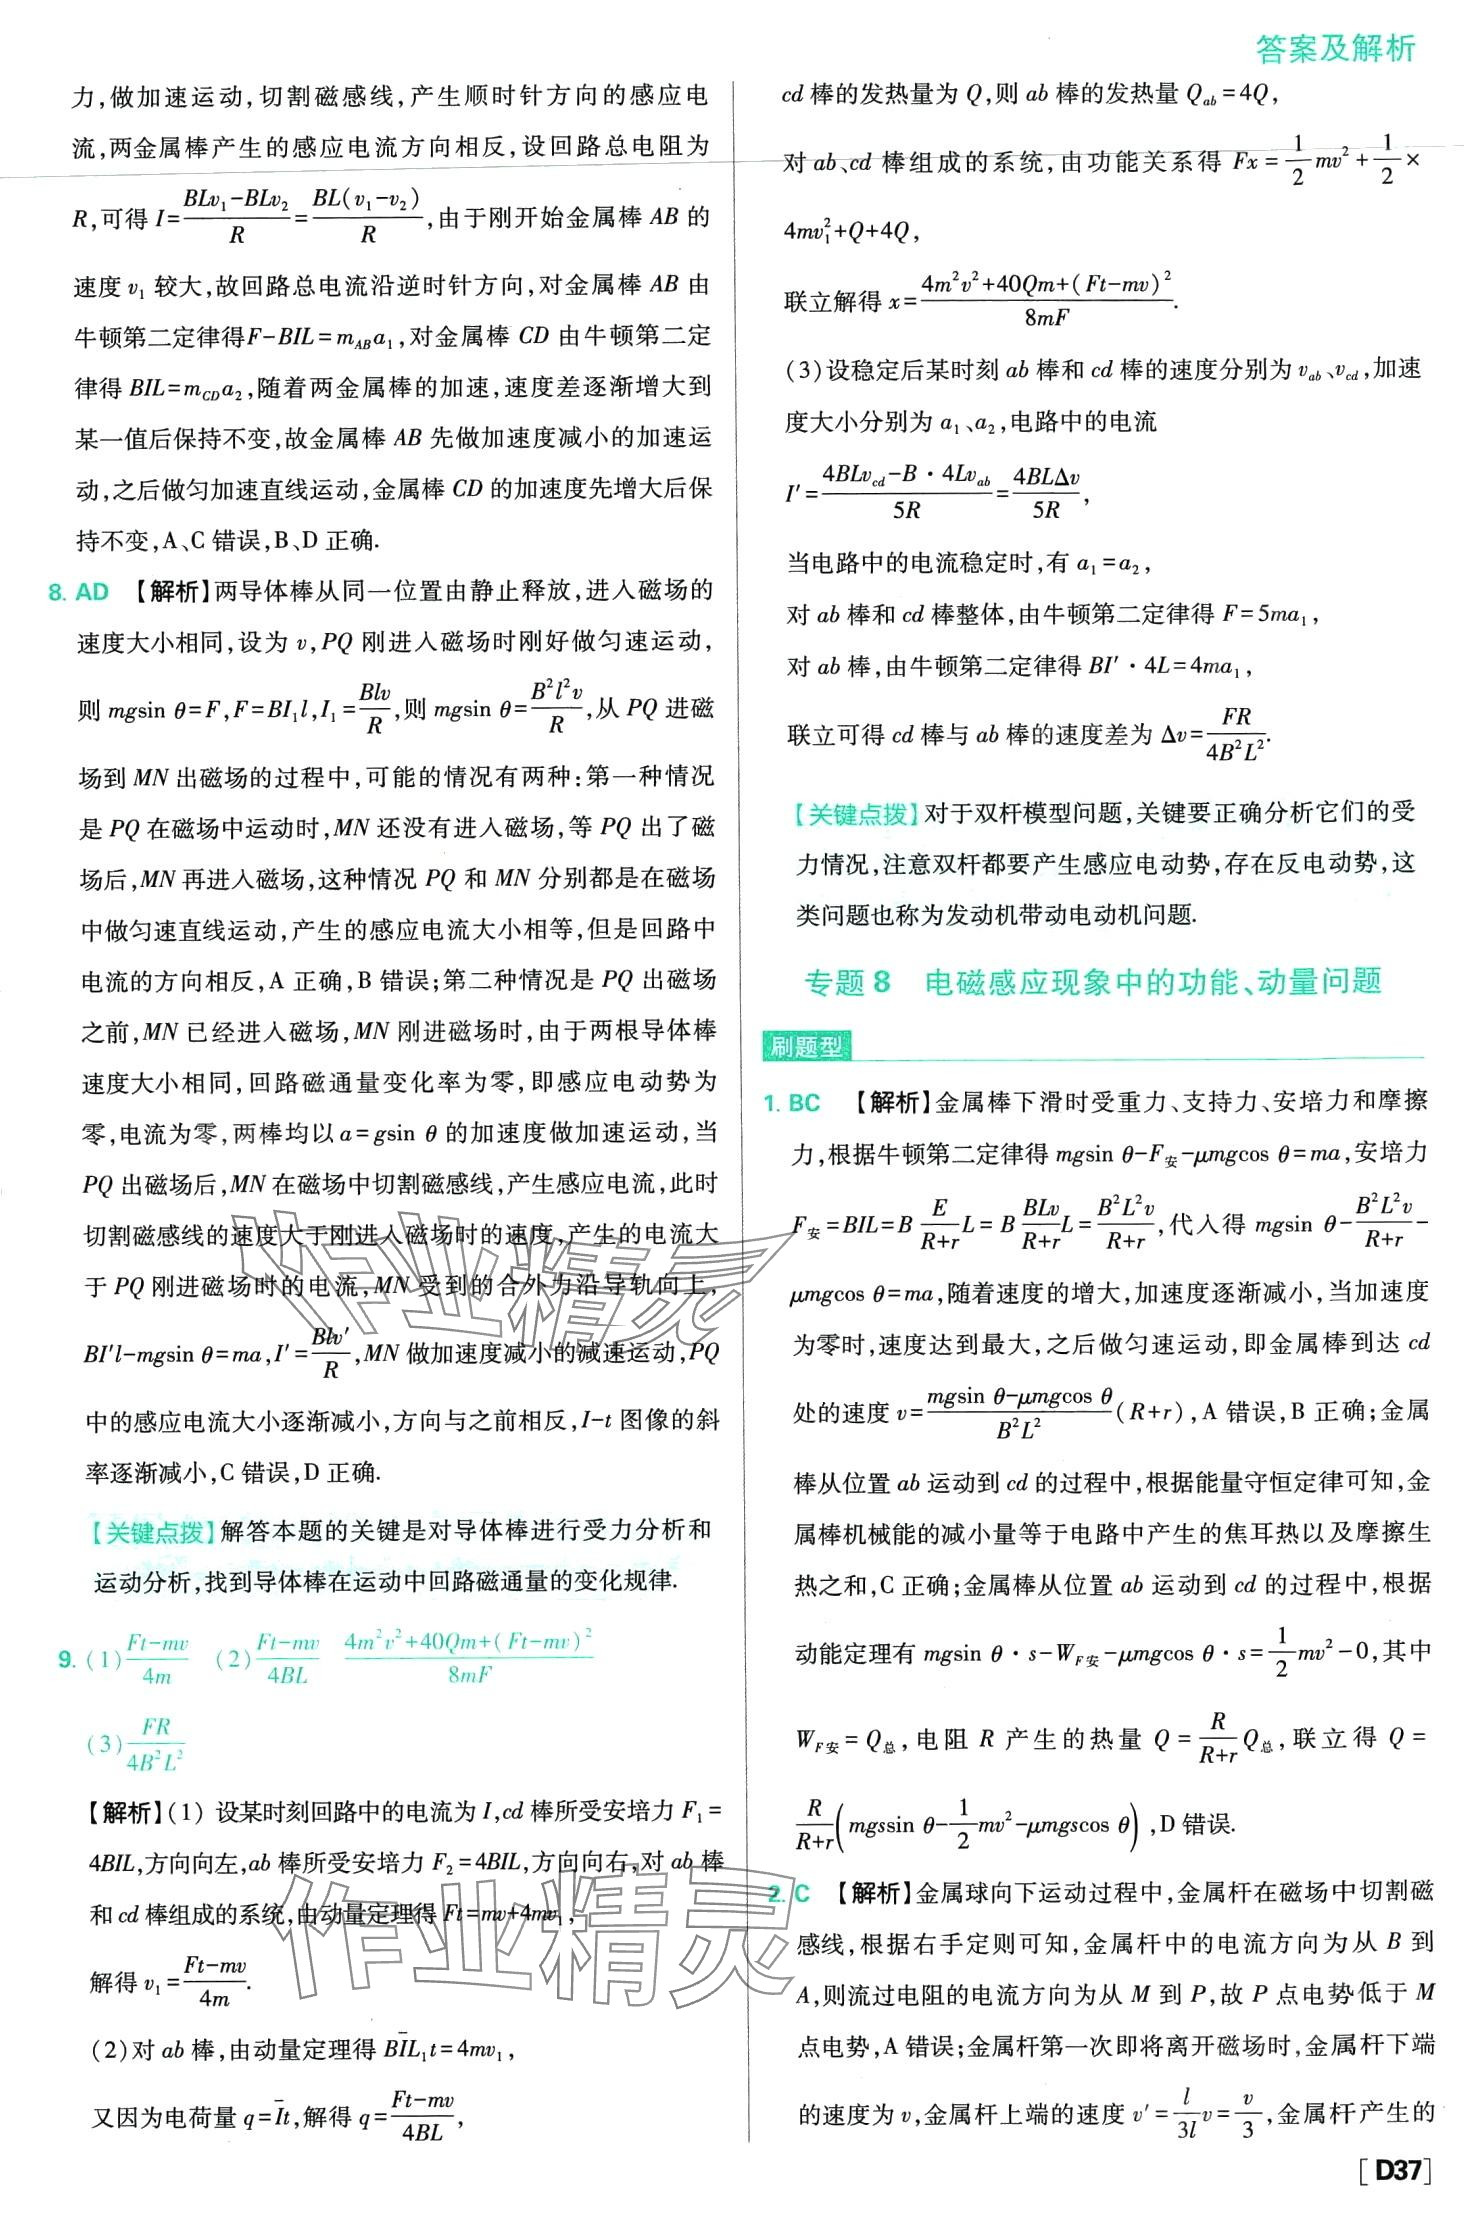 答案及解析
力,做加速运动,切割磁感线,产生顺时针方向的感应电
流,两金属棒产生的感应电流方向相反,设回路总电阻为
R,可得 I=\frac{BLv₁-BLv₂}{R}=\frac{BL(v₁-v₂)}{R},由于刚开始金属棒 AB 的
速度 v₁ 较大,故回路总电流沿逆时针方向,对金属棒 AB 由
牛顿第二定律得F-BIL=m_{AB}a₁,对金属棒 CD 由牛顿第二定
律得 BIL=m_{CD}a₂,随着两金属棒的加速,速度差逐渐增大到
某一值后保持不变,故金属棒 AB 先做加速度减小的加速运
动,之后做匀加速直线运动,金属棒 CD 的加速度先增大后保
持不变,A、C 错误,B、D 正确.
8. AD 【解析】两导体棒从同一位置由静止释放,进入磁场的
速度大小相同,设为 v,PQ 刚进入磁场时刚好做匀速运动,
则 mgsin θ=F,F=BI₁l,I₁=\frac{Blv}{R},则 mgsin θ=\frac{B²l²v}{R},从 PQ 进磁
场到 MN 出磁场的过程中,可能的情况有两种:第一种情况
是 PQ 在磁场中运动时,MN 还没有进入磁场,等 PQ 出了磁
场后,MN 再进入磁场,这种情况 PQ 和 MN 分别都是在磁场
中做匀速直线运动,产生的感应电流大小相等,但是回路中
电流的方向相反,A 正确,B 错误;第二种情况是 PQ 出磁场
之前,MN 已经进入磁场,MN 刚进磁场时,由于两根导体棒
速度大小相同,回路磁通量变化率为零,即感应电动势为
零,电流为零,两棒均以 a=gsin θ 的加速度做加速运动,当
PQ 出磁场后,MN 在磁场中切割磁感线,产生感应电流,此时
切割磁感线的速度大于刚进入磁场时的速度,产生的电流大
于 PQ 刚进磁场时的电流,MN 受到的合外力沿导轨向上,
BI'l-mgsin θ=ma,I'=\frac{Blv'}{R},MN 做加速度减小的减速运动,PQ
中的感应电流大小逐渐减小,方向与之前相反,I-t 图像的斜
率逐渐减小,C 错误,D 正确.
【关键点拨】解答本题的关键是对导体棒进行受力分析和
运动分析,找到导体棒在运动中回路磁通量的变化规律.
9. (1)\frac{Ft-mv}{4m} (2)\frac{Ft-mv}{4BL} \frac{4m²v²+40Qm+(Ft-mv)²}{8mF}
(3)\frac{FR}{4B²L²}
【解析】(1) 设某时刻回路中的电流为 I,cd 棒所受安培力 F₁=
4BIL,方向向左,ab 棒所受安培力 F₂=4BIL,方向向右,对 ab 棒
和 cd 棒组成的系统,由动量定理得 Ft=mv+4mv₁,
解得 v₁=\frac{Ft-mv}{4m}.
(2)对 ab 棒,由动量定理得 B\bar{I}L₁t=4mv₁,
又因为电荷量 q=\bar{I}t,解得 q=\frac{Ft-mv}{4BL},
cd 棒的发热量为 Q,则 ab 棒的发热量 Q_{ab}=4Q,
对 ab、cd 棒组成的系统,由功能关系得 Fx=\frac{1}{2}mv²+\frac{1}{2}×
4mv₁²+Q+4Q,
联立解得 x=\frac{4m²v²+40Qm+(Ft-mv)²}{8mF}.
(3)设稳定后某时刻 ab 棒和 cd 棒的速度分别为 v_{ab}、v_{cd},加速
度大小分别为 a₁、a₂,电路中的电流
I'=\frac{4BLv_{cd}-B·4Lv_{ab}}{5R}=\frac{4BLΔv}{5R},
当电路中的电流稳定时,有 a₁=a₂,
对 ab 棒和 cd 棒整体,由牛顿第二定律得 F=5ma₁,
对 ab 棒,由牛顿第二定律得 BI'·4L=4ma₁,
联立可得 cd 棒与 ab 棒的速度差为 Δv=\frac{FR}{4B²L²}.
【关键点拨】对于双杆模型问题,关键要正确分析它们的受
力情况,注意双杆都要产生感应电动势,存在反电动势,这
类问题也称为发动机带动电动机问题.
专题 8 电磁感应现象中的功能、动量问题
刷题型
1. BC 【解析】金属棒下滑时受重力、支持力、安培力和摩擦
力,根据牛顿第二定律得 mgsin θ-F_{安}-μmgcos θ=ma,安培力
F_{安}=BIL=B\frac{E}{R+r}L=B\frac{BLv}{R+r}L=\frac{B²L²v}{R+r},代入得 mgsin θ-\frac{B²L²v}{R+r}-
μmgcos θ=ma,随着速度的增大,加速度逐渐减小,当加速度
为零时,速度达到最大,之后做匀速运动,即金属棒到达 cd
处的速度 v=\frac{mgsin θ-μmgcos θ}{B²L²}(R+r),A 错误,B 正确;金属
棒从位置 ab 运动到 cd 的过程中,根据能量守恒定律可知,金
属棒机械能的减小量等于电路中产生的焦耳热以及摩擦生
热之和,C 正确;金属棒从位置 ab 运动到 cd 的过程中,根据
动能定理有 mgsin θ·s-W_{F安}-μmgcos θ·s=\frac{1}{2}mv²-0,其中
W_{F安}=Q_{总},电阻 R 产生的热量 Q=\frac{R}{R+r}Q_{总},联立得 Q=
\frac{R}{R+r}(mgssin θ-\frac{1}{2}mv²-μmgscos θ),D 错误.
2. C 【解析】金属球向下运动过程中,金属杆在磁场中切割磁
感线,根据右手定则可知,金属杆中的电流方向为从 B 到
A,则流过电阻的电流方向为从 M 到 P,故 P 点电势低于 M
点电势,A 错误;金属杆第一次即将离开磁场时,金属杆下端
的速度为 v,金属杆上端的速度 v'=\frac{l}{3l}v=\frac{v}{3},金属杆产生的
[D37]
作业精灵
作业精灵